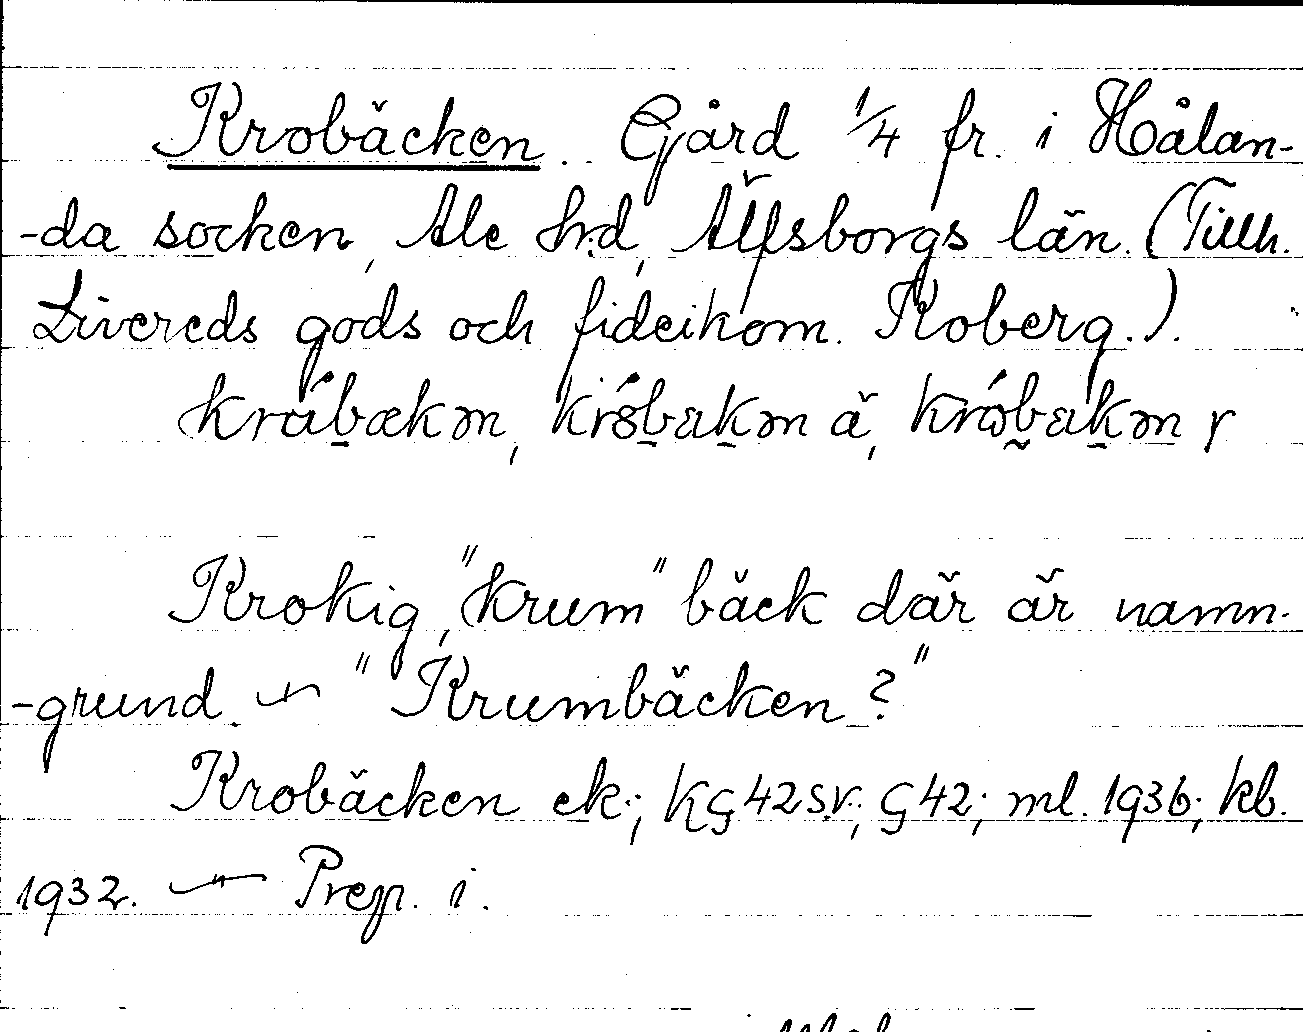 Krobäcken. Gård 1/4 fr. i Hålan-
-da socken, Ale hrd, Älfsborgs län. (Tillh.
Livereds gods och fideikom. Koberg.).
Krokig, "krum" bäck där är namn-
-grund. — "Krumbäcken?"
Krobäcken ek.; KG42sv.; G42; ml. 1936; kb.
1932. — Prep. i.